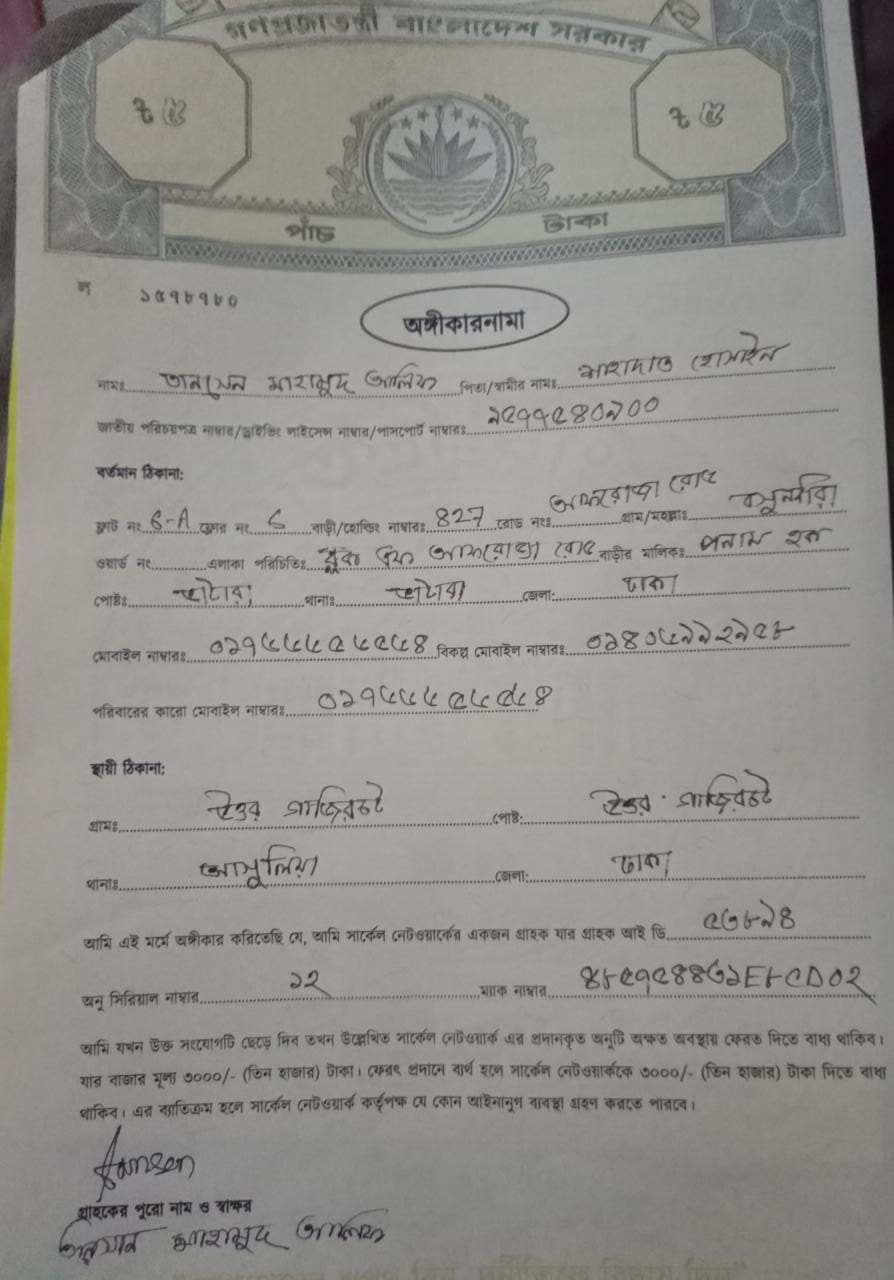 গণপ্রজাতন্ত্রী বাংলাদেশ সরকার
৳ ৫ ৳ ৫
পাঁচ টাকা
ন ১৫৭৮৭৮০
অঙ্গীকারনামা
নামঃ তানসেন মাহামুদ আলিফ পিতা/স্বামীর নামঃ শাহাদাত হোসাইন
জাতীয় পরিচয়পত্র নাম্বার/ড্রাইভিং লাইসেন্স নাম্বার/পাসপোর্ট নাম্বারঃ ১৫৭৭৫৪০৯০০
বর্তমান ঠিকানা:
ফ্লাট নং 6-A ফ্লোর নং 6 বাড়ী/হোল্ডিং নাম্বারঃ 827 রোড নংঃ আফরোজা রোড গ্রাম/মহল্লাঃ বসুন্ধরা
ওয়ার্ড নং এলাকা পরিচিতিঃ ব্লক এফ আফরোজা রোড বাড়ীর মালিকঃ হক
পোষ্টঃ ভাটারা থানাঃ ভাটারা জেলা: ঢাকা
মোবাইল নাম্বারঃ ০১৭৬৬৬৫৬৫৬৪ বিকল্প মোবাইল নাম্বারঃ ০১৪০৬৯৯২৯৫৮
পরিবারের কারো মোবাইল নাম্বারঃ ০১৭৬৬৬৫৬৫৬৪
স্থায়ী ঠিকানা:
গ্রামঃ উত্তর গাজিরচট পোষ্ট: উত্তর গাজিরচট
থানাঃ আশুলিয়া জেলা: ঢাকা
আমি এই মর্মে অঙ্গীকার করিতেছি যে, আমি সার্কেল নেটওয়ার্কের একজন গ্রাহক যার গ্রাহক আই ডি ৫৩৮৯৪
অনু সিরিয়াল নাম্বার ১২ ম্যাক নাম্বার
আমি যখন উক্ত সংযোগটি ছেড়ে দিব তখন উল্লেখিত সার্কেল নেটওয়ার্ক এর প্রদানকৃত অনুটি অক্ষত অবস্থায় ফেরত দিতে বাধ্য থাকিব।
যার বাজার মূল্য ৩০০০/- (তিন হাজার) টাকা। ফেরৎ প্রদানে ব্যর্থ হলে সার্কেল নেটওয়ার্ককে ৩০০০/- (তিন হাজার) টাকা দিতে বাধ্য
থাকিব। এর ব্যতিক্রম হলে সার্কেল নেটওয়ার্ক কর্তৃপক্ষ যে কোন আইনানুগ ব্যবস্থা গ্রহণ করতে পারবে।
Tamsen
গ্রাহকের পুরো নাম ও স্বাক্ষর
তানসেন মাহামুদ আলিফ